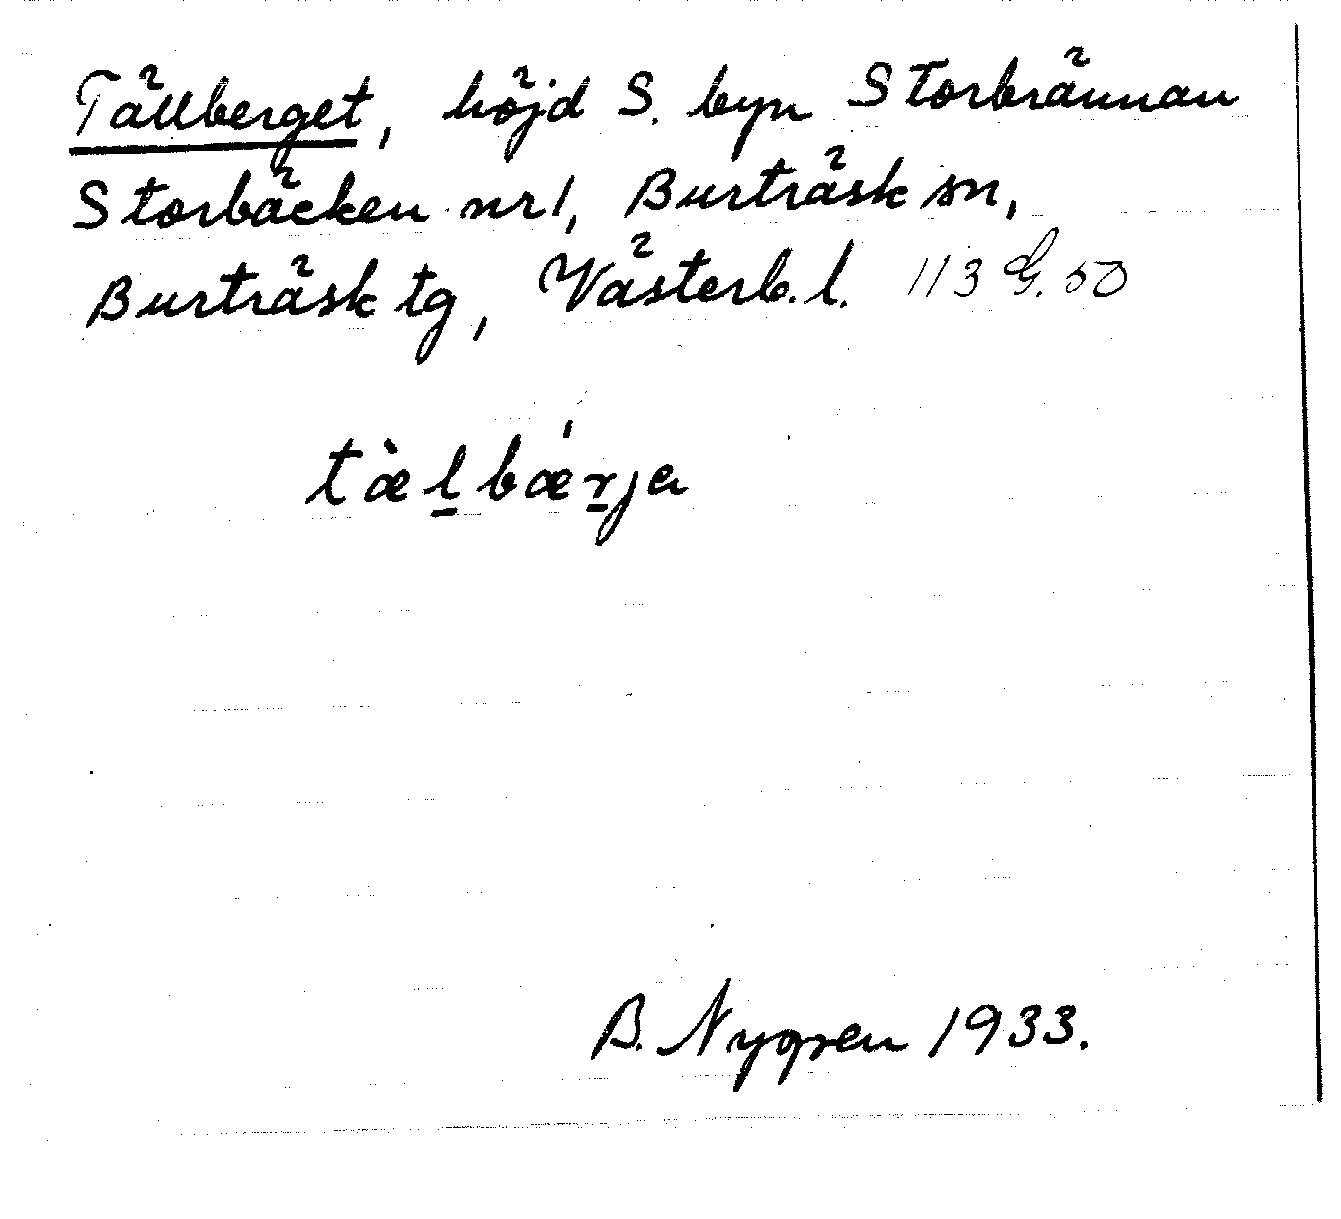 Tällberget, höjd S. byn Storbrännan
Storbäcken nr1, Burträsk sn,
Burträsk tg, Västerb. l. 113 G. 50
tæ̀l̠bǽr̠ja
B. Nygren 1933.